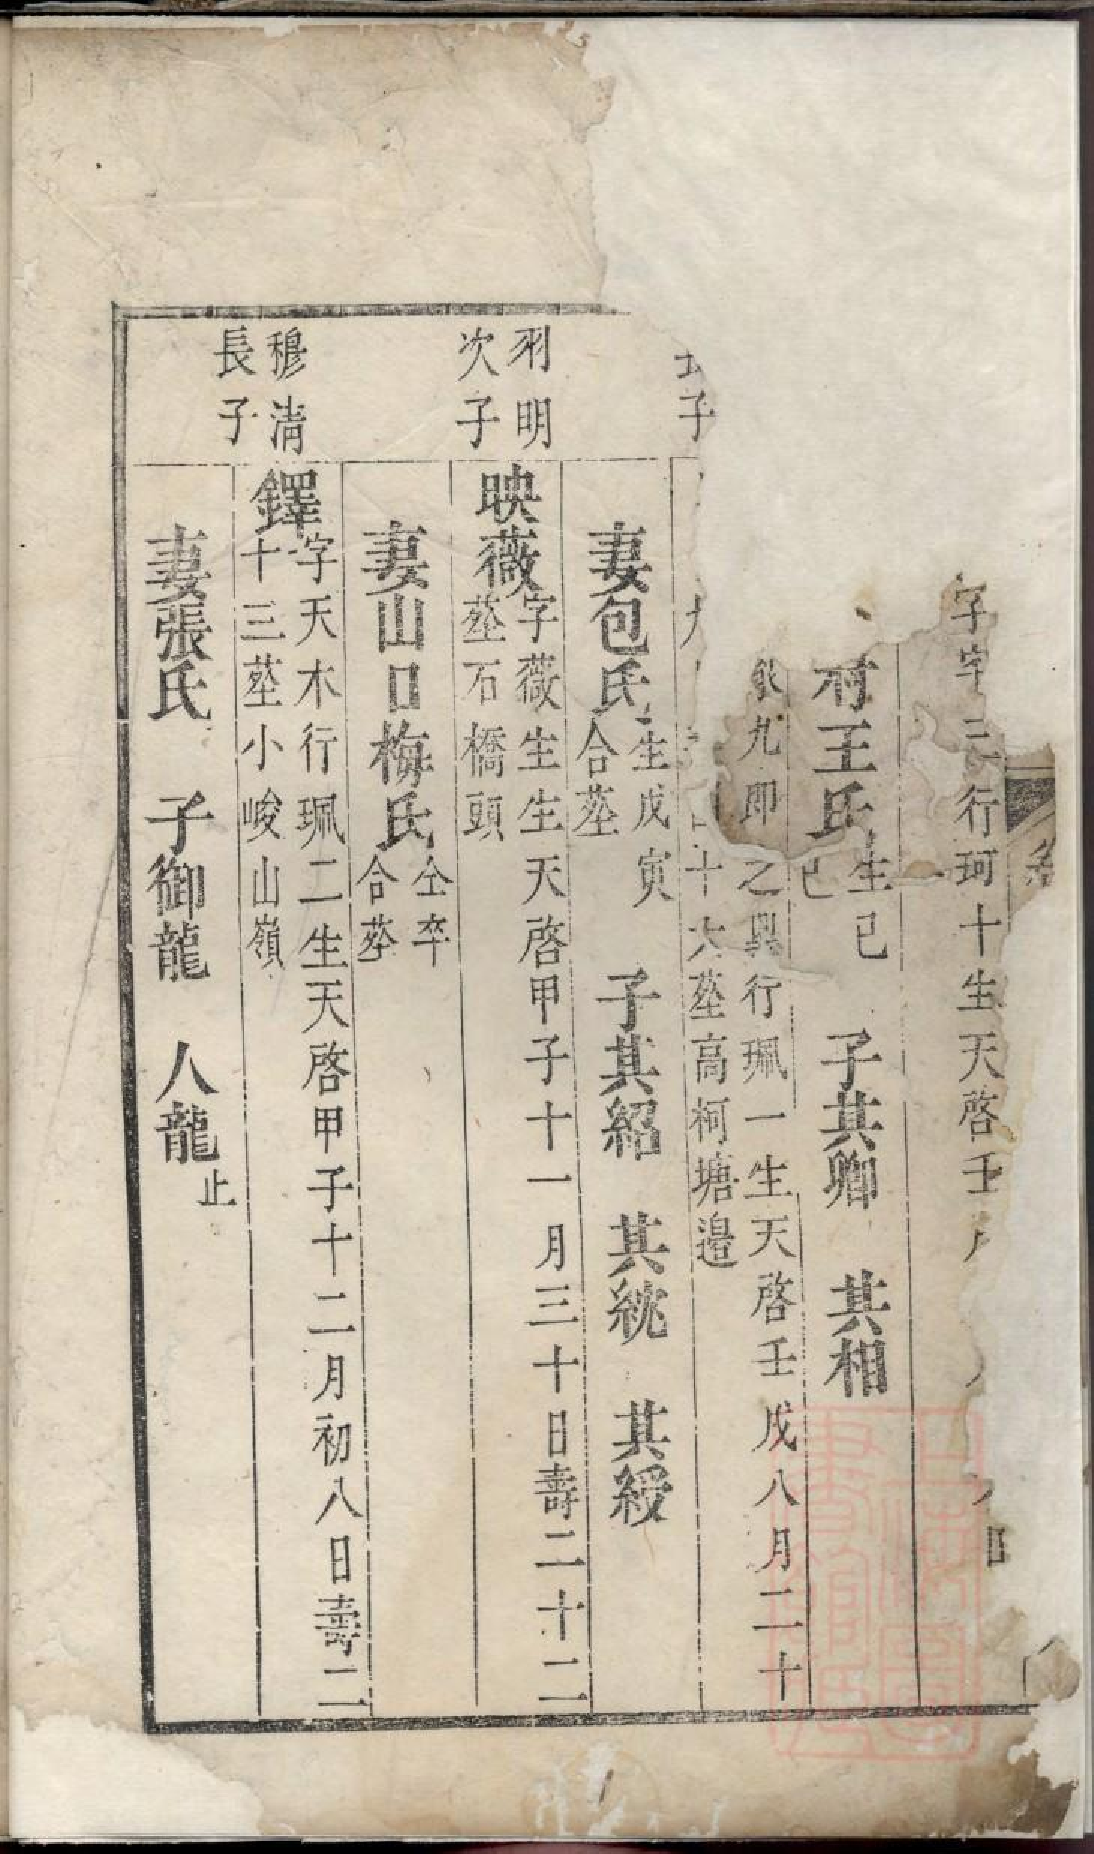 字
行珂十生天啓壬
王氏
生己
子其卿　其相
九即之興行珮一生天啓壬戌八月二十
子
十六塟高柯塘邉
妻包氏
生戊寅
合塟
子其紹　其統　其綬
羽明
次子
映薇
字薇生生天啓甲子十一月三十日壽二十二
塟石橋頭
妻山口梅氏
仝卒
合塟
穆清
長子
鐸
字天木行珮二生天啓甲子十二月初八日壽二
十三塟小峻山嶺
妻張氏　子御龍　人龍
止